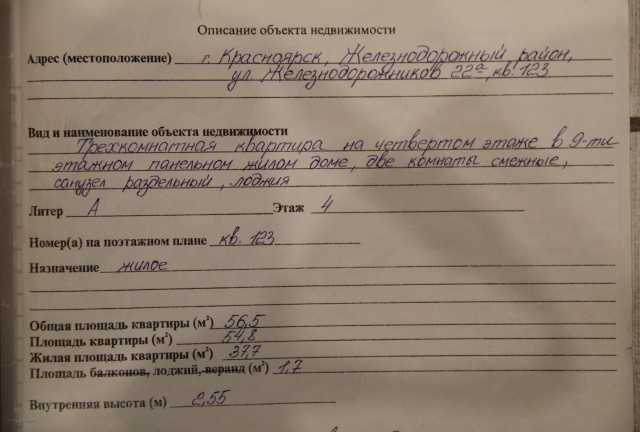 Описание объекта недвижимости
Адрес (местоположение) г. Красноярск, Железнодорожный район,
ул. Железнодорожников 22а, кв. 123
Вид и наименование объекта недвижимости
Трехкомнатная квартира на четвертом этаже в 9-ти
этажном панельном жилом доме, две комнаты смежные,
санузел раздельный, лоджия
Литер А Этаж 4
Номер(а) на поэтажном плане кв. 123
Назначение жилое
Общая площадь квартиры (м²) 56,5
Площадь квартиры (м²) 54,8
Жилая площадь квартиры (м²) 37,7
Площадь балконов, лоджий, веранд (м²) 1,7
Внутренняя высота (м) 2,55